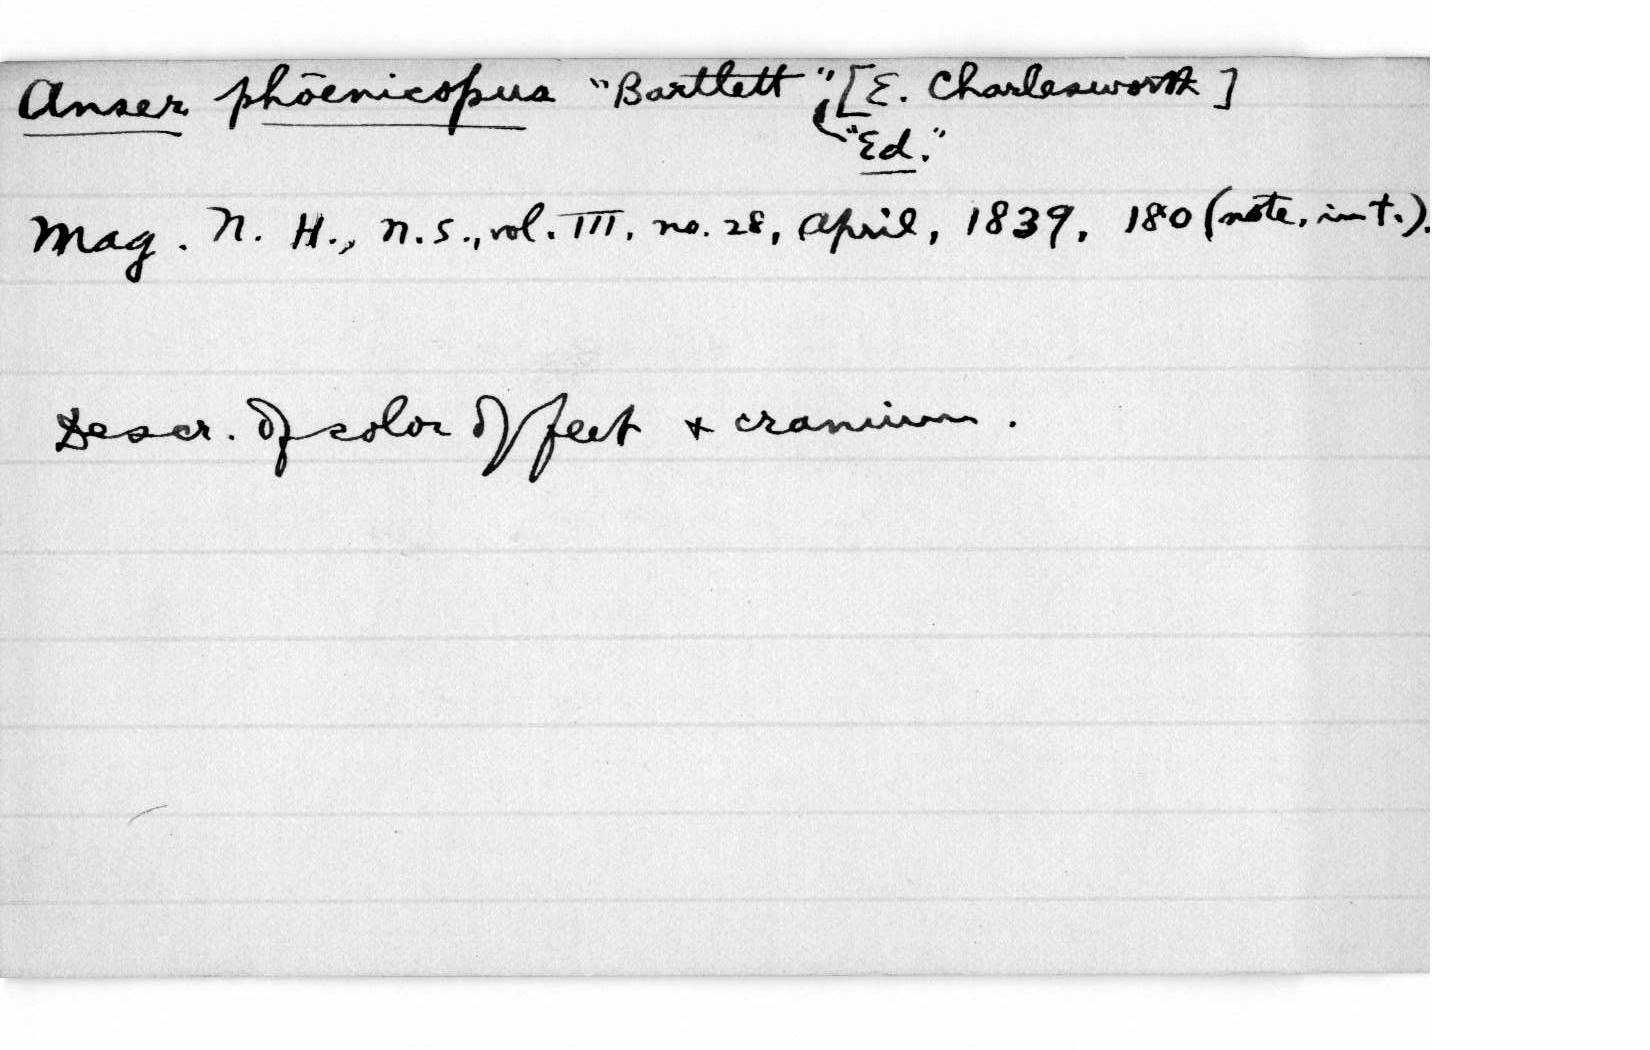 Anser phōenicopus "Bartlett", [E. Charlesworth]
"Ed."
Mag. N. H., n.s., vol. III, no. 28, April, 1839, 180 (note, in t.).
Descr. of color of feet + cranium.